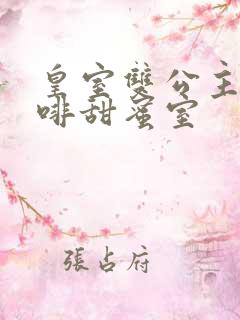 皇室雙公主
啡甜蜜室
張占府